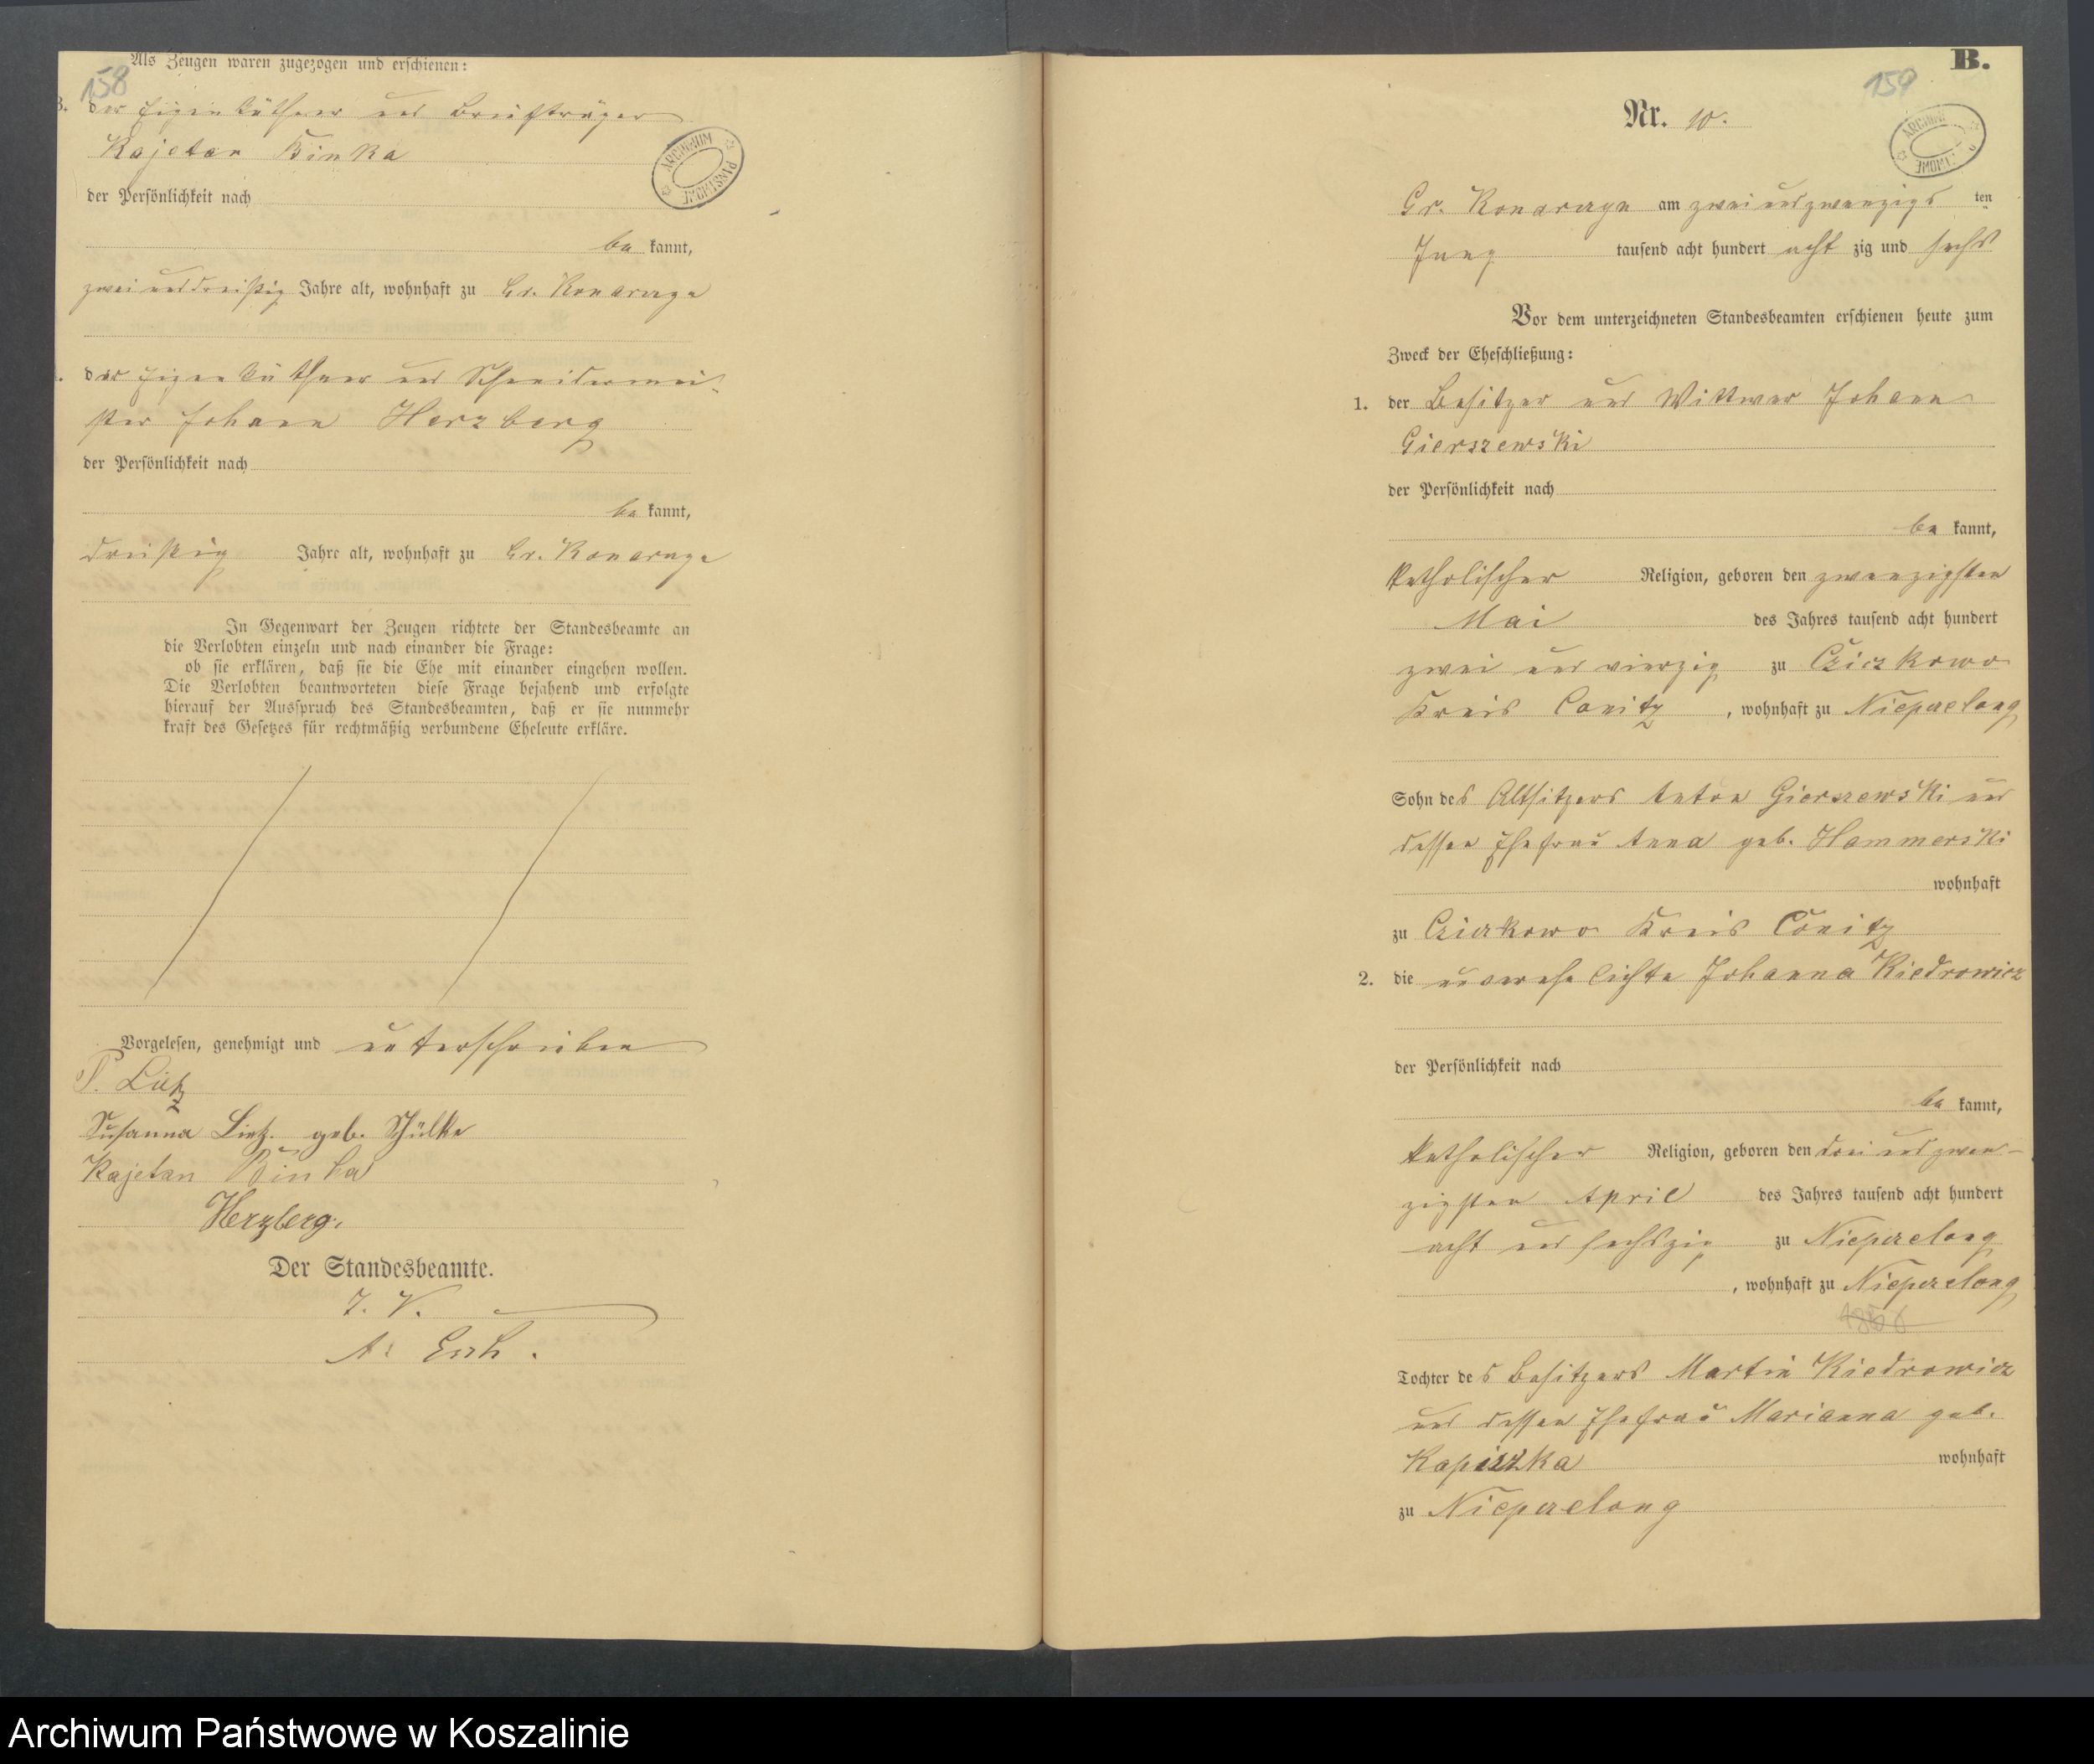 158
Als Zeugen waren zugezogen und erschienen:
3. der Eigenkäthner und Briefträger
Kajetan Binka
ARCHIWUM PAŃSTWOWE
der Persönlichkeit nach
be kannt,
zwei und dreißig Jahre alt, wohnhaft zu Gr. Konarczyn
der Eigenkäthner und Schneidermei-
ster Johann Herzberg
der Persönlichkeit nach
be kannt,
dreißig Jahre alt, wohnhaft zu Gr. Konarczyn
In Gegenwart der Zeugen richtete der Standesbeamte an
die Verlobten einzeln und nach einander die Frage:
ob sie erklären, daß sie die Ehe mit einander eingehen wollen.
Die Verlobten beantworteten diese Frage bejahend und erfolgte
hierauf der Ausspruch des Standesbeamten, daß er sie nunmehr
kraft des Gesetzes für rechtmäßig verbundene Eheleute erkläre.
Vorgelesen, genehmigt und unterschrieben
P. Lietz
Susanna Lietz geb. Schülke
Kajetan Binka
Herzberg.
Der Standesbeamte.
I. V.
B.
159
Nr. 10.
ARCHIWUM
Gr. Konarczyn am zwei und zwanzigs ten
Juny tausend acht hundert acht zig und sechs
Vor dem unterzeichneten Standesbeamten erschienen heute zum
Zweck der Eheschließung:
1. der Besitzer und Wittwer Johann
Gierszewski
der Persönlichkeit nach
be kannt,
katholischer Religion, geboren den zwanzigsten
Mai des Jahres tausend acht hundert
zwei und vierzig zu Cziczkowo
Kreis Conitz, wohnhaft zu Niepszelong
Sohn des Altsitzers Anton Gierszewski und
dessen Ehefrau Anna geb. Hammerski
wohnhaft
zu Cziczkowo Kreis Conitz
2. die unverehelichte Johanna Kiedrowicz
der Persönlichkeit nach
be kannt,
katholischer Religion, geboren den drei und zwan-
zigsten April des Jahres tausend acht hundert
acht und sechszig zu Niepszelong
, wohnhaft zu Niepszelong
Tochter des Besitzers Martin Kiedrowicz
und dessen Ehefrau Marianna geb.
Kapiszka wohnhaft
zu Niepszelong
Archiwum Państwowe w Koszalinie